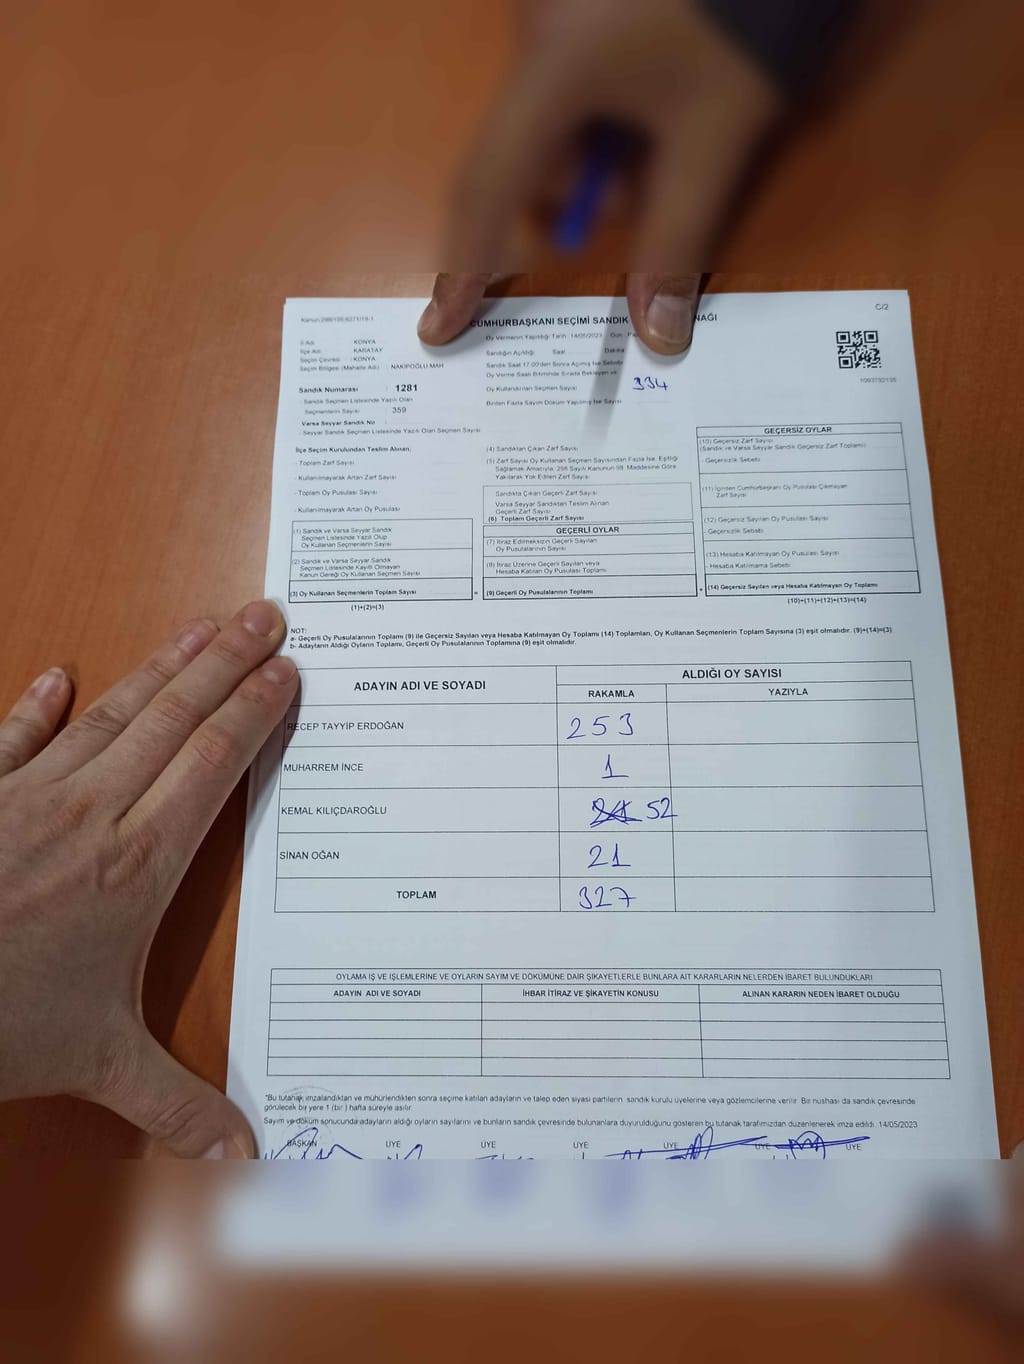 C/2
CUMHURBAŞKANI SEÇİMİ SANDIK NAĞI
İl Adı : KONYA
İlçe Adı : KARATAY
Seçim Çevresi : KONYA
Seçim Bölgesi (Mahalle Adı) : NAKİPOĞLU MAH
Sandık Numarası : 1281
Sandık Seçmen Listesinde Yazılı Olan
Seçmenlerin Sayısı : 359
Varsa Seyyar Sandık No
Seyyar Sandık Seçmen Listesinde Yazılı Olan Seçmen Sayısı
Oy Vermenin Yapıldığı Tarih : 14/05/2023 Gün :
Sandığın Açıldığı Saat Dakika
Sandık Saat 17.00'den Sonra Açılmış İse Sebebi
Oy Verme Saati Bitiminde Sırada Bekleyen ve
Oy Kullandırılan Seçmen Sayısı 334
Birden Fazla Sayım Döküm Yapılmış İse Sayısı
İlçe Seçim Kurulundan Teslim Alınan:
- Toplam Zarf Sayısı
- Kullanılmayarak Artan Zarf Sayısı
- Toplam Oy Pusulası Sayısı
- Kullanılmayarak Artan Oy Pusulası
(1) Sandık ve Varsa Seyyar Sandık
Seçmen Listesinde Yazılı Olup
Oy Kullanan Seçmenlerin Sayısı
(2) Sandık ve Varsa Seyyar Sandık
Seçmen Listesinde Kayıtlı Olmayan
Kanun Gereği Oy Kullanan Seçmen Sayısı
(3) Oy Kullanan Seçmenlerin Toplam Sayısı
(1)+(2)=(3)
(4) Sandıktan Çıkan Zarf Sayısı
(5) Zarf Sayısı Oy Kullanan Seçmen Sayısından Fazla İse, Eşitliği
Sağlamak Amacıyla; 298 Sayılı Kanunun 98. Maddesine Göre
Yakılarak Yok Edilen Zarf Sayısı
Sandıkta Çıkan Geçerli Zarf Sayısı
Varsa Seyyar Sandıktan Teslim Alınan
Geçerli Zarf Sayısı
(6) Toplam Geçerli Zarf Sayısı
GEÇERLİ OYLAR
(7) İtiraz Edilmeksizin Geçerli Sayılan
Oy Pusulalarının Sayısı
(8) İtiraz Üzerine Geçerli Sayılan veya
Hesaba Katılan Oy Pusulası Toplamı
= (9) Geçerli Oy Pusulalarının Toplamı +
GEÇERSİZ OYLAR
(10) Geçersiz Zarf Sayısı
(Sandık ve Varsa Seyyar Sandık Geçersiz Zarf Toplamı)
- Geçersizlik Sebebi
(11) İçinden Cumhurbaşkanı Oy Pusulası Çıkmayan
Zarf Sayısı
(12) Geçersiz Sayılan Oy Pusulası Sayısı
- Geçersizlik Sebebi
(13) Hesaba Katılmayan Oy Pusulası Sayısı
- Hesaba Katılmama Sebebi
(14) Geçersiz Sayılan veya Hesaba Katılmayan Oy Toplamı
(10)+(11)+(12)+(13)=(14)
NOT:
a- Geçerli Oy Pusulalarının Toplamı (9) ile Geçersiz Sayılan veya Hesaba Katılmayan Oy Toplamı (14) Toplamları, Oy Kullanan Seçmenlerin Toplam Sayısına (3) eşit olmalıdır. (9)+(14)=(3)
b- Adayların Aldığı Oyların Toplamı, Geçerli Oy Pusulalarının Toplamına (9) eşit olmalıdır.
ADAYIN ADI VE SOYADI
ALDIĞI OY SAYISI
RAKAMLA YAZIYLA
RECEP TAYYİP ERDOĞAN 253
MUHARREM İNCE 1
KEMAL KILIÇDAROĞLU 52
SİNAN OĞAN 21
TOPLAM 327
OYLAMA İŞ VE İŞLEMLERİNE VE OYLARIN SAYIM VE DÖKÜMÜNE DAİR ŞİKAYETLERLE BUNLARA AİT KARARLARIN NELERDEN İBARET BULUNDUKLARI
ADAYIN ADI VE SOYADI İHBAR İTİRAZ VE ŞİKAYETİN KONUSU ALINAN KARARIN NEDEN İBARET OLDUĞU
"Bu tutanak imzalandıktan ve mühürlendikten sonra seçime katılan adayların ve talep eden siyasi partilerin sandık kurulu üyelerine veya gözlemcilerine verilir. Bir nüshası da sandık çevresinde
görülecek bir yere 1 (bir) hafta süreyle asılır.
Sayım ve döküm sonucunda adayların aldığı oyların sayılarını ve bunların sandık çevresinde bulunanlara duyurulduğunu gösteren bu tutanak tarafımızdan düzenlenerek imza edildi. 14/05/2023
BAŞKAN ÜYE ÜYE ÜYE ÜYE ÜYE ÜYE